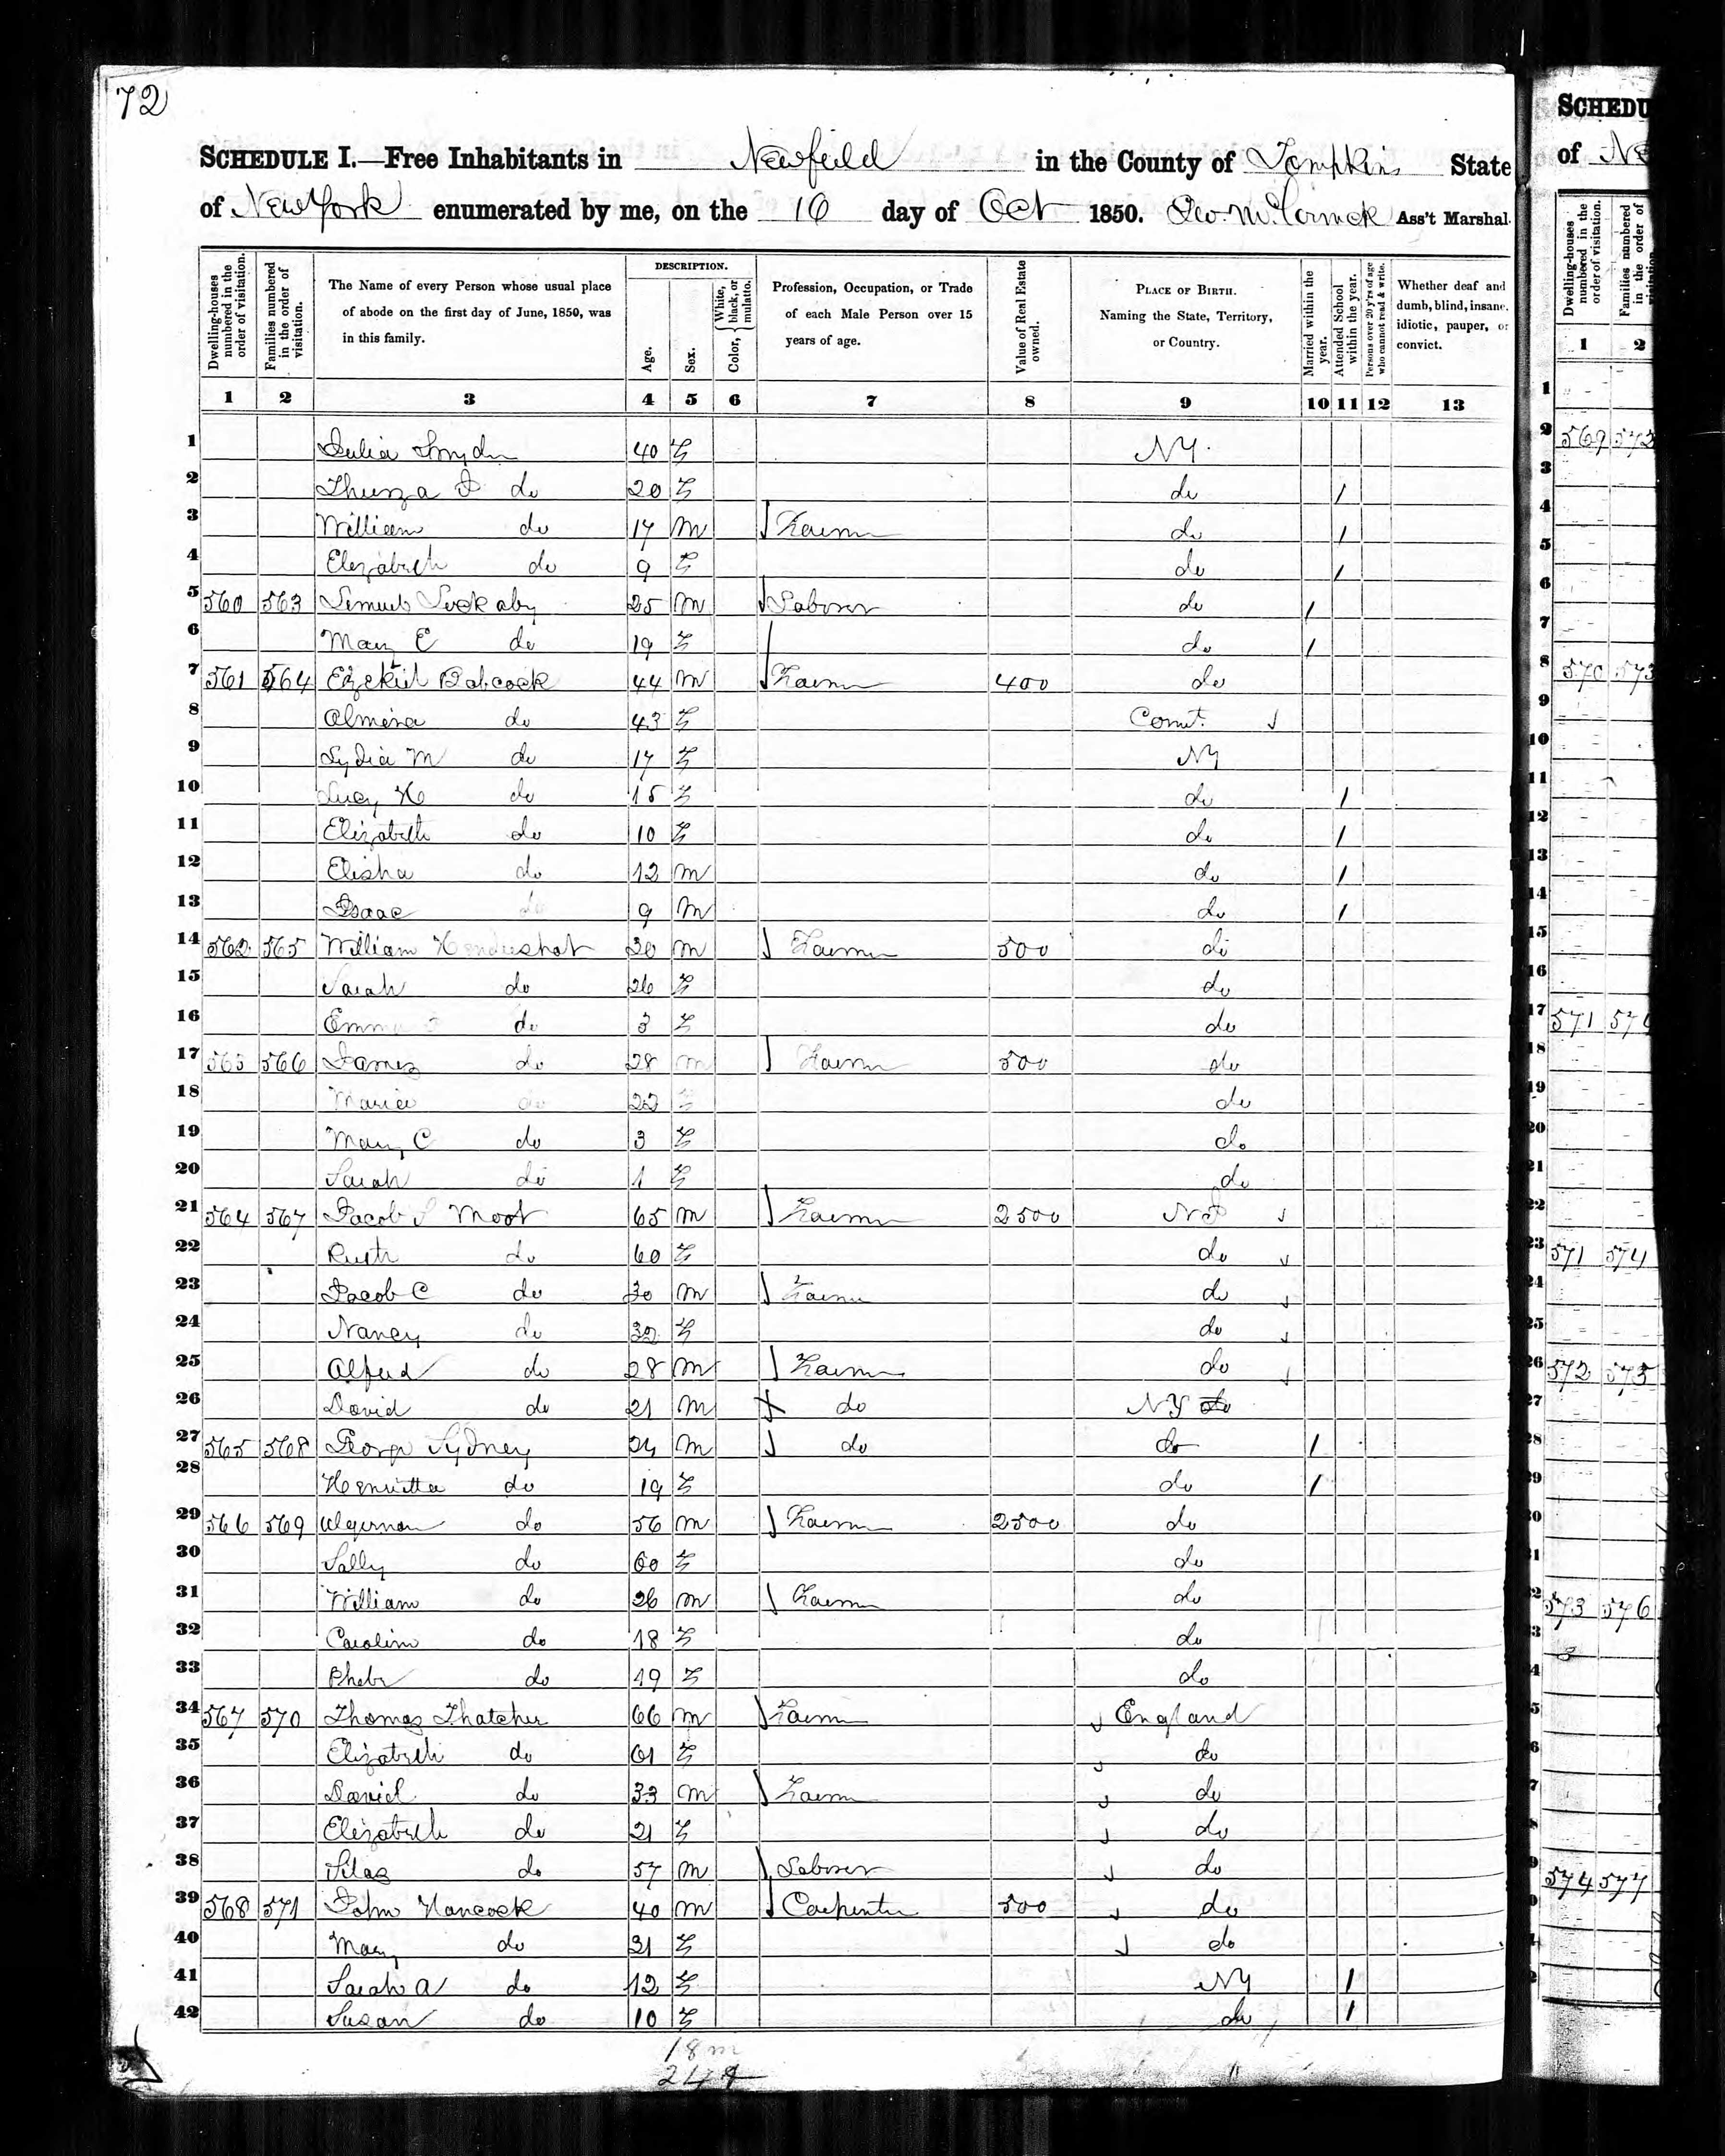 72
SCHEDULE I.—Free Inhabitants in Newfield in the County of Tompkins State
of New York enumerated by me, on the 16 day of Oct 1850. Geo. McCormick Ass't Marshal.
Dwelling-houses numbered in the order of visitation.
Families numbered in the order of visitation.
The Name of every Person whose usual place of abode on the first day of June, 1850, was in this family.
DESCRIPTION.
Age.
Sex.
Color, White, black, or mulatto.
Profession, Occupation, or Trade of each Male Person over 15 years of age.
Value of Real Estate owned.
PLACE OF BIRTH. Naming the State, Territory, or Country.
Married within the year.
Attended School within the year.
Persons over 20 y'rs of age who cannot read & write.
Whether deaf and dumb, blind, insane, idiotic, pauper, or convict.
1 2 3 4 5 6 7 8 9 10 11 12 13
1 Julia Snyder 40 F NY.
2 Thurza J do 20 F do /
3 William do 17 M Farmer do /
4 Elizabeth do 9 F do /
5 560 563 25 M Laborer do /
6 Mary E do 19 F do /
7 561 564 Ezekiel Babcock 44 M Farmer 400 do
8 Almira do 43 F Connt.
9 Lydia M do 17 F NY
10 Lucy H do 15 F do /
11 Elizabeth do 10 F do /
12 Elisha do 12 M do /
13 Isaac do 9 M do /
14 562 565 William Hendershot 30 M Farmer 500 do
15 Sarah do 26 F do
16 Emma do 3 F do
17 563 566 James do 28 M Farmer 500 do
18 Maria do 22 F do
19 Mary C do 3 F do
20 Sarah do 1 F do
21 564 567 Jacob S Moot 65 M Farmer 2500 NJ
22 Ruth do 60 F do
23 Jacob C do 30 M Farmer do
24 Nancy do 32 F do
25 Alfred do 28 M Farmer do
26 David do 21 M do NY do
27 565 568 George Sydney 24 M do do /
28 Henrietta do 19 F do /
29 566 569 Algernon do 56 M Farmer 2500 do
30 Sally do 60 F do
31 William do 26 M Farmer do
32 Caroline do 18 F do
33 Phebe do 19 F do
34 567 570 Thomas Thatcher 66 M Farmer England
35 Elizabeth do 61 F do
36 Daniel do 33 M Farmer do
37 Elizabeth do 21 F do
38 Silas do 57 M Laborer do
39 568 571 John Hancock 40 M Carpenter 500 do
40 Mary do 31 F do
41 Sarah A do 12 F NY /
42 Susan do 10 F do /
18 m
24 f
SCHEDU
of Ne
Dwelling-houses numbered in the order of visitation.
Families numbered in the order of
1 2
569 572
570 573
571
571 574
572 575
573 576
574 577